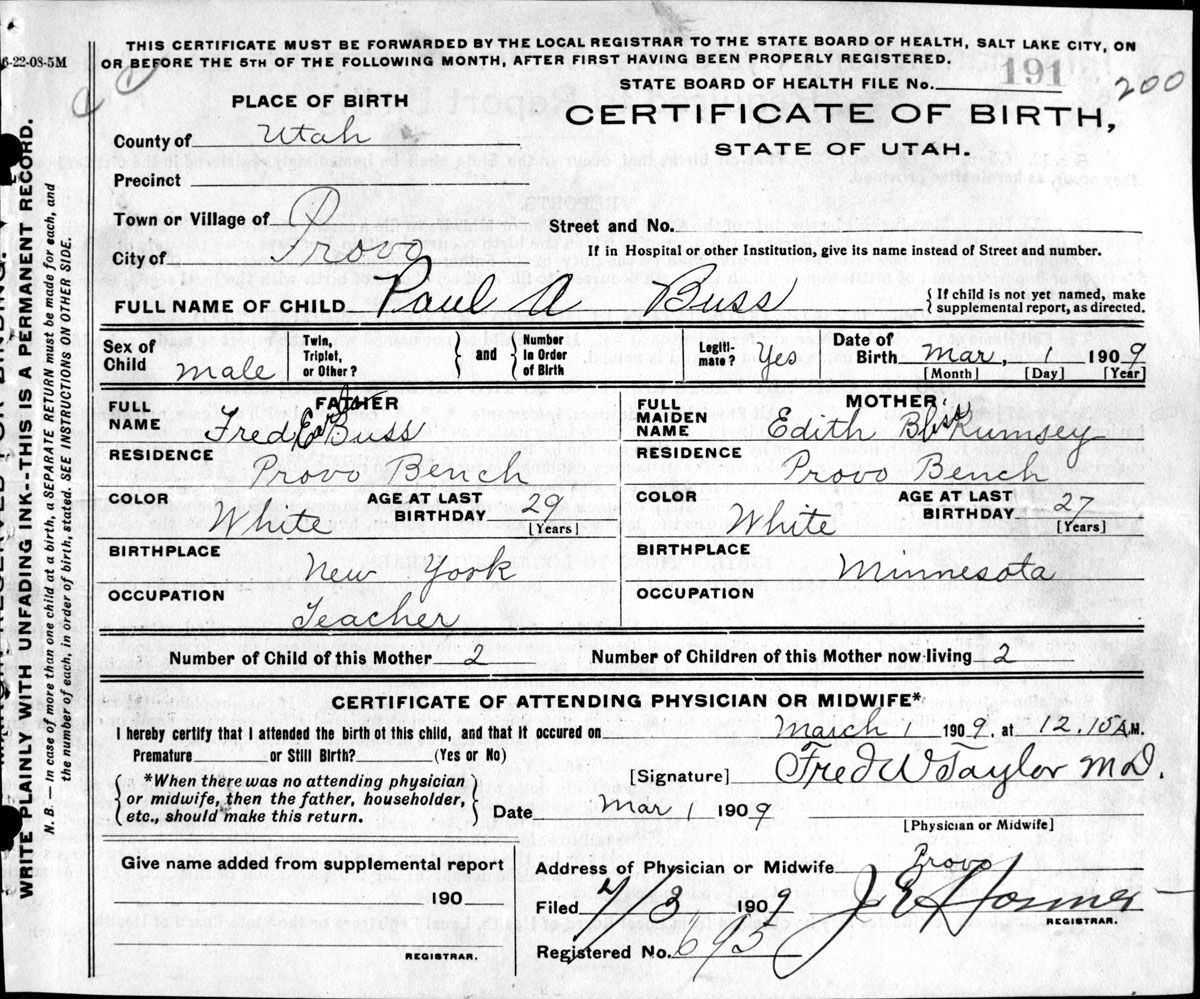 THIS CERTIFICATE MUST BE FORWARDED BY THE LOCAL REGISTRAR TO THE STATE BOARD OF HEALTH, SALT LAKE CITY, ON
6-22-08-5M OR BEFORE THE 5TH OF THE FOLLOWING MONTH, AFTER FIRST HAVING BEEN PROPERLY REGISTERED.
STATE BOARD OF HEALTH FILE No. 191 200
PLACE OF BIRTH
CERTIFICATE OF BIRTH,
STATE OF UTAH.
County of Utah
Precinct
Town or Village of
Street and No.
City of Provo
If in a Hospital or other institution, give its name instead of Street and number.
FULL NAME OF CHILD Paul A Buss
{If child is not yet named, make
supplemental report, as directed.
Sex of Child male
Twin, Triplet, or Other?
and
Number in Order of Birth
Legiti-mate? Yes
Date of Birth Mar, 1 1909
[Month] [Day] [Year]
FATHER
FULL NAME Fred Buss
RESIDENCE
Provo Bench
COLOR White
AGE AT LAST BIRTHDAY 29
[Years]
BIRTHPLACE
New York
OCCUPATION
Teacher
MOTHER
FULL MAIDEN NAME Edith Rumsey
RESIDENCE
Provo Bench
COLOR White
AGE AT LAST BIRTHDAY 27
[Years]
BIRTHPLACE
Minnesota
OCCUPATION
Number of Child of this Mother 2 Number of Children of this Mother now living 2
CERTIFICATE OF ATTENDING PHYSICIAN OR MIDWIFE*
I hereby certify that I attended the birth of this child, and that it occured on March 1 1909, at 12.15 A.M.
Premature or Still Birth? (Yes or No)
*When there was no attending physician
or midwife, then the father, householder,
etc., should make this return.
[Signature] Fred W Taylor MD.
Date Mar 1 1909
[Physician or Midwife]
Give name added from supplemenal report
190
REGISTRAR.
Address of Physician or Midwife Provo
Filed 4/3, 1909 J E Hosmer
REGISTRAR.
Registered No. 695
WRITE PLAINLY WITH UNFADING INK--THIS IS A PERMANENT RECORD.
N. B.—In case of more than one child at a birth, a SEPARATE RETURN must be made for each, and
the number of each, in order of birth, stated. SEE INSTRUCTIONS ON OTHER SIDE.